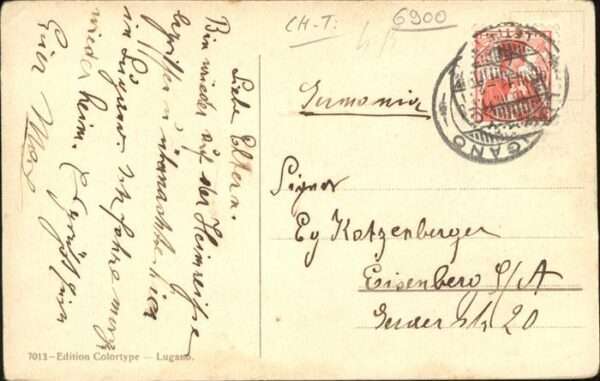 CH-T:
6900
LUGANO
Germania
Signor
Eg Katzenberger
Eisenberg S/A
Geraer Str. 20
Liebe Eltern.
Bin wieder auf der Heimreise
begriffen u. übernachte hier
in Lugano. Ich fahre morg
wieder heim. Es grüßt Euch
Euer Max
7013 – Edition Colortype — Lugano.